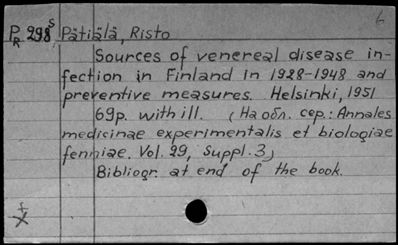 6
PR 298s Pätiälä, Risto
Sources of venereal disease in-
fection in Finland in 1928-1948 and
preventive measures. Helsinki, 1951
69p. with ill. (На обл. сер.: Annales
medicinae experimentalis et biologiae
fenniae. Vol. 29, Suppl. 3)
Bibliogr. at end of the book.